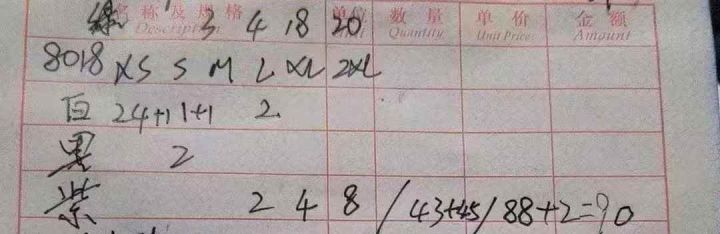 名称及规格 单位 数量 单价 金额
Description Quantity Unit Price Amount
绿 3 4 18 20
8018 XS S M L XL 2XL
白 24+1 1+1 2
黑 2
紫 2 4 8 / 43+45 / 88+2=90